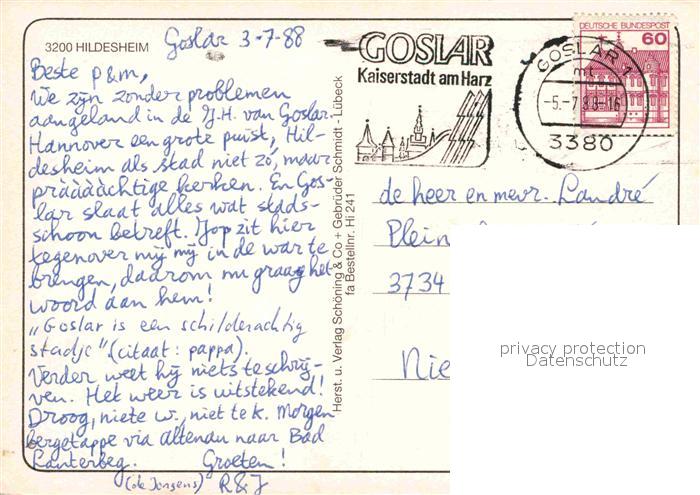 3200 HILDESHEIM
Goslar 3-7-88
Beste p&m,
We zijn zonder problemen
aangeland in de J.H. van Goslar.
Hannover een grote puist, Hil-
desheim als stad niet zo, maar
prààààchtige kerken. En Gos-
lar slaat alles wat stads-
schoon betreft. Jop zit hier
tegenover mij mij in de war te
brengen, daarom nu graag het
woord aan hem!
„Goslar is een schilderachtig
stadje" (citaat: pappa).
Verder weet hij niets te schrij-
ven. Het weer is uitstekend!
Droog, niet te w., niet te k. Morgen
bergetappe via Altenau naar Bad
Lauterberg. Groeten!
(de Jongens) R&J
Herst. u. Verlag Schöning & Co + Gebrüder Schmidt - Lübeck
fa Bestellnr. Hi 241
GOSLAR
Kaiserstadt am Harz
GOSLAR 1
mt
-5.-7.88-16
3380
DEUTSCHE BUNDESPOST
60
de heer en mevr. Landré
Plein
3734
Nie
privacy protection
Datenschutz